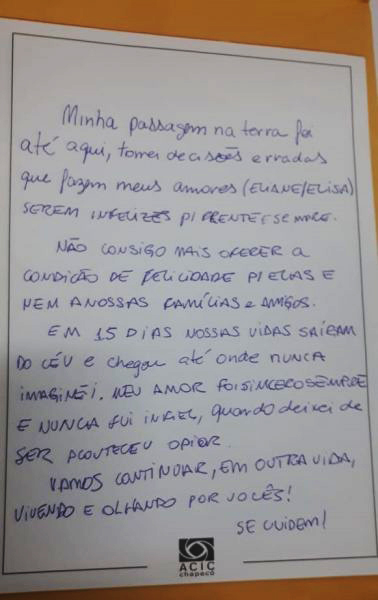 Minha passagem na terra foi
até aqui, tomei decisões erradas
que fazem meus amores (ELIANE/ELISA)
SEREM INFELIZES P/ FRENTE E SEMPRE.
NÃO CONSIGO MAIS OFERER A
CONDIÇÃO DE FELICIDADE P/ ELAS E
NEM A NOSSAS FAMÍLIAS e AMIGOS.
EM 15 DIAS NOSSAS VIDAS SAÍRAM
DO CÉU e chegou até onde NUNCA
IMAGINEI. MEU AMOR FOI SINCERO SEMPRE
E NUNCA fui INFIEL, quando deixei de
SER ACONTECEU O PIOR.
VAMOS CONTINUAR, EM OUTRA VIDA,
VIVENDO E OLHANDO POR VOCÊS!
SE CUIDEM!
ACIC
chapecó